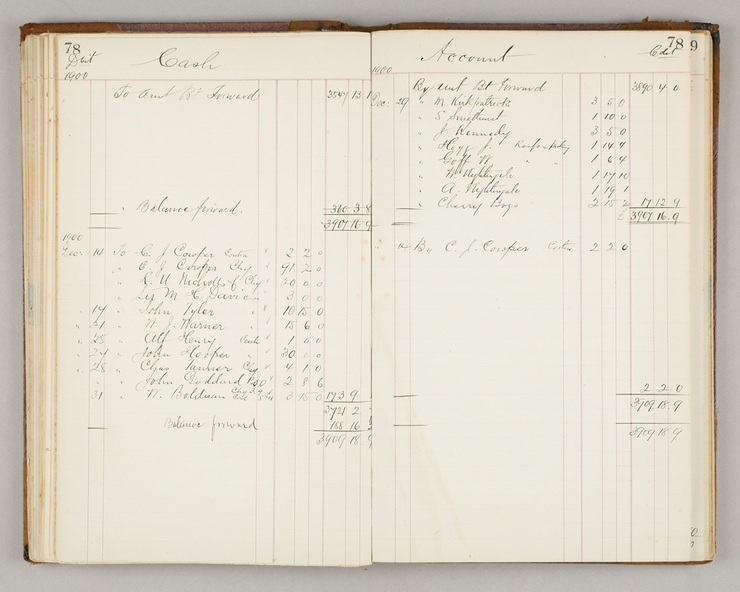 78
Cash
1900
To Amt Bt Forward 3547 13
" Balance forward. 360 3 8
3907 16 9
1900
Decr 14 To C. J. Cowper Contra " 2 2 0
" C. J. Cowper Chq " 91 2 0
" Chq 20 0 0
" M. H. Davies " 3 0 0
" 17 " John Tyler " " 10 15 0
" 21 " W. J. Warner " " 15 6 0
" 25 " Alf Henry Cash " 1 0 0
" 27 " John Hooper " " 30 0 0
" 28 " Chas Tanner Chq " 4 1 0
" " John Goddard " 2 8 6
31 " W. Boldman 3 15 0 173 9
3721 2
Balance forward 188 16
3909 18 9
78
9
Account
1900
By Amt Bt Forward 3890 4 0
Dec. 29 " M Kirkpatrick 3 5 0
" S Smethurst 1 10 0
" J Kennedy 3 5 0
" J. 1 14 4
" Goff W " " 1 6 4
" W. Nightingale 1 17 10
" A. Nightingale 1 19 1
" Cherry Boys 2 15 2 17 12 9
£ 3907 16 9
" 14 By C. J. Cowper Contra 2 2 0
2 2 0
3909 18 9
3909 18 9